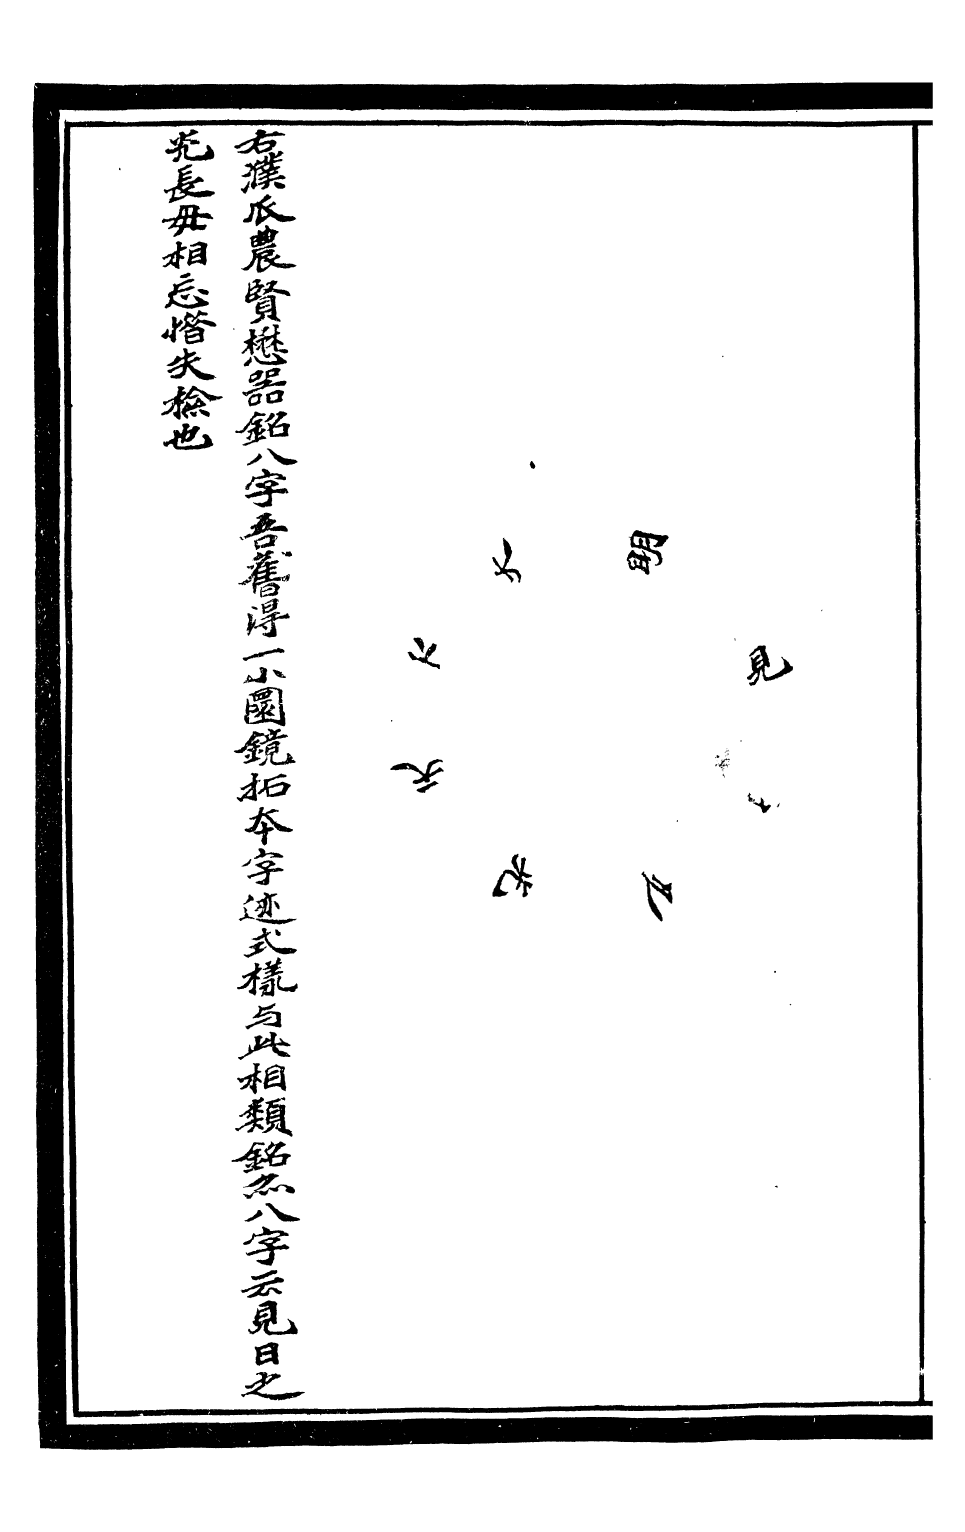 見
之光天下大明
右濮瓜農賢懋器銘八字吾舊得一小圜鏡拓本字迹式樣与此相類銘亦八字云見日之
光長毋相忘惜失檢也